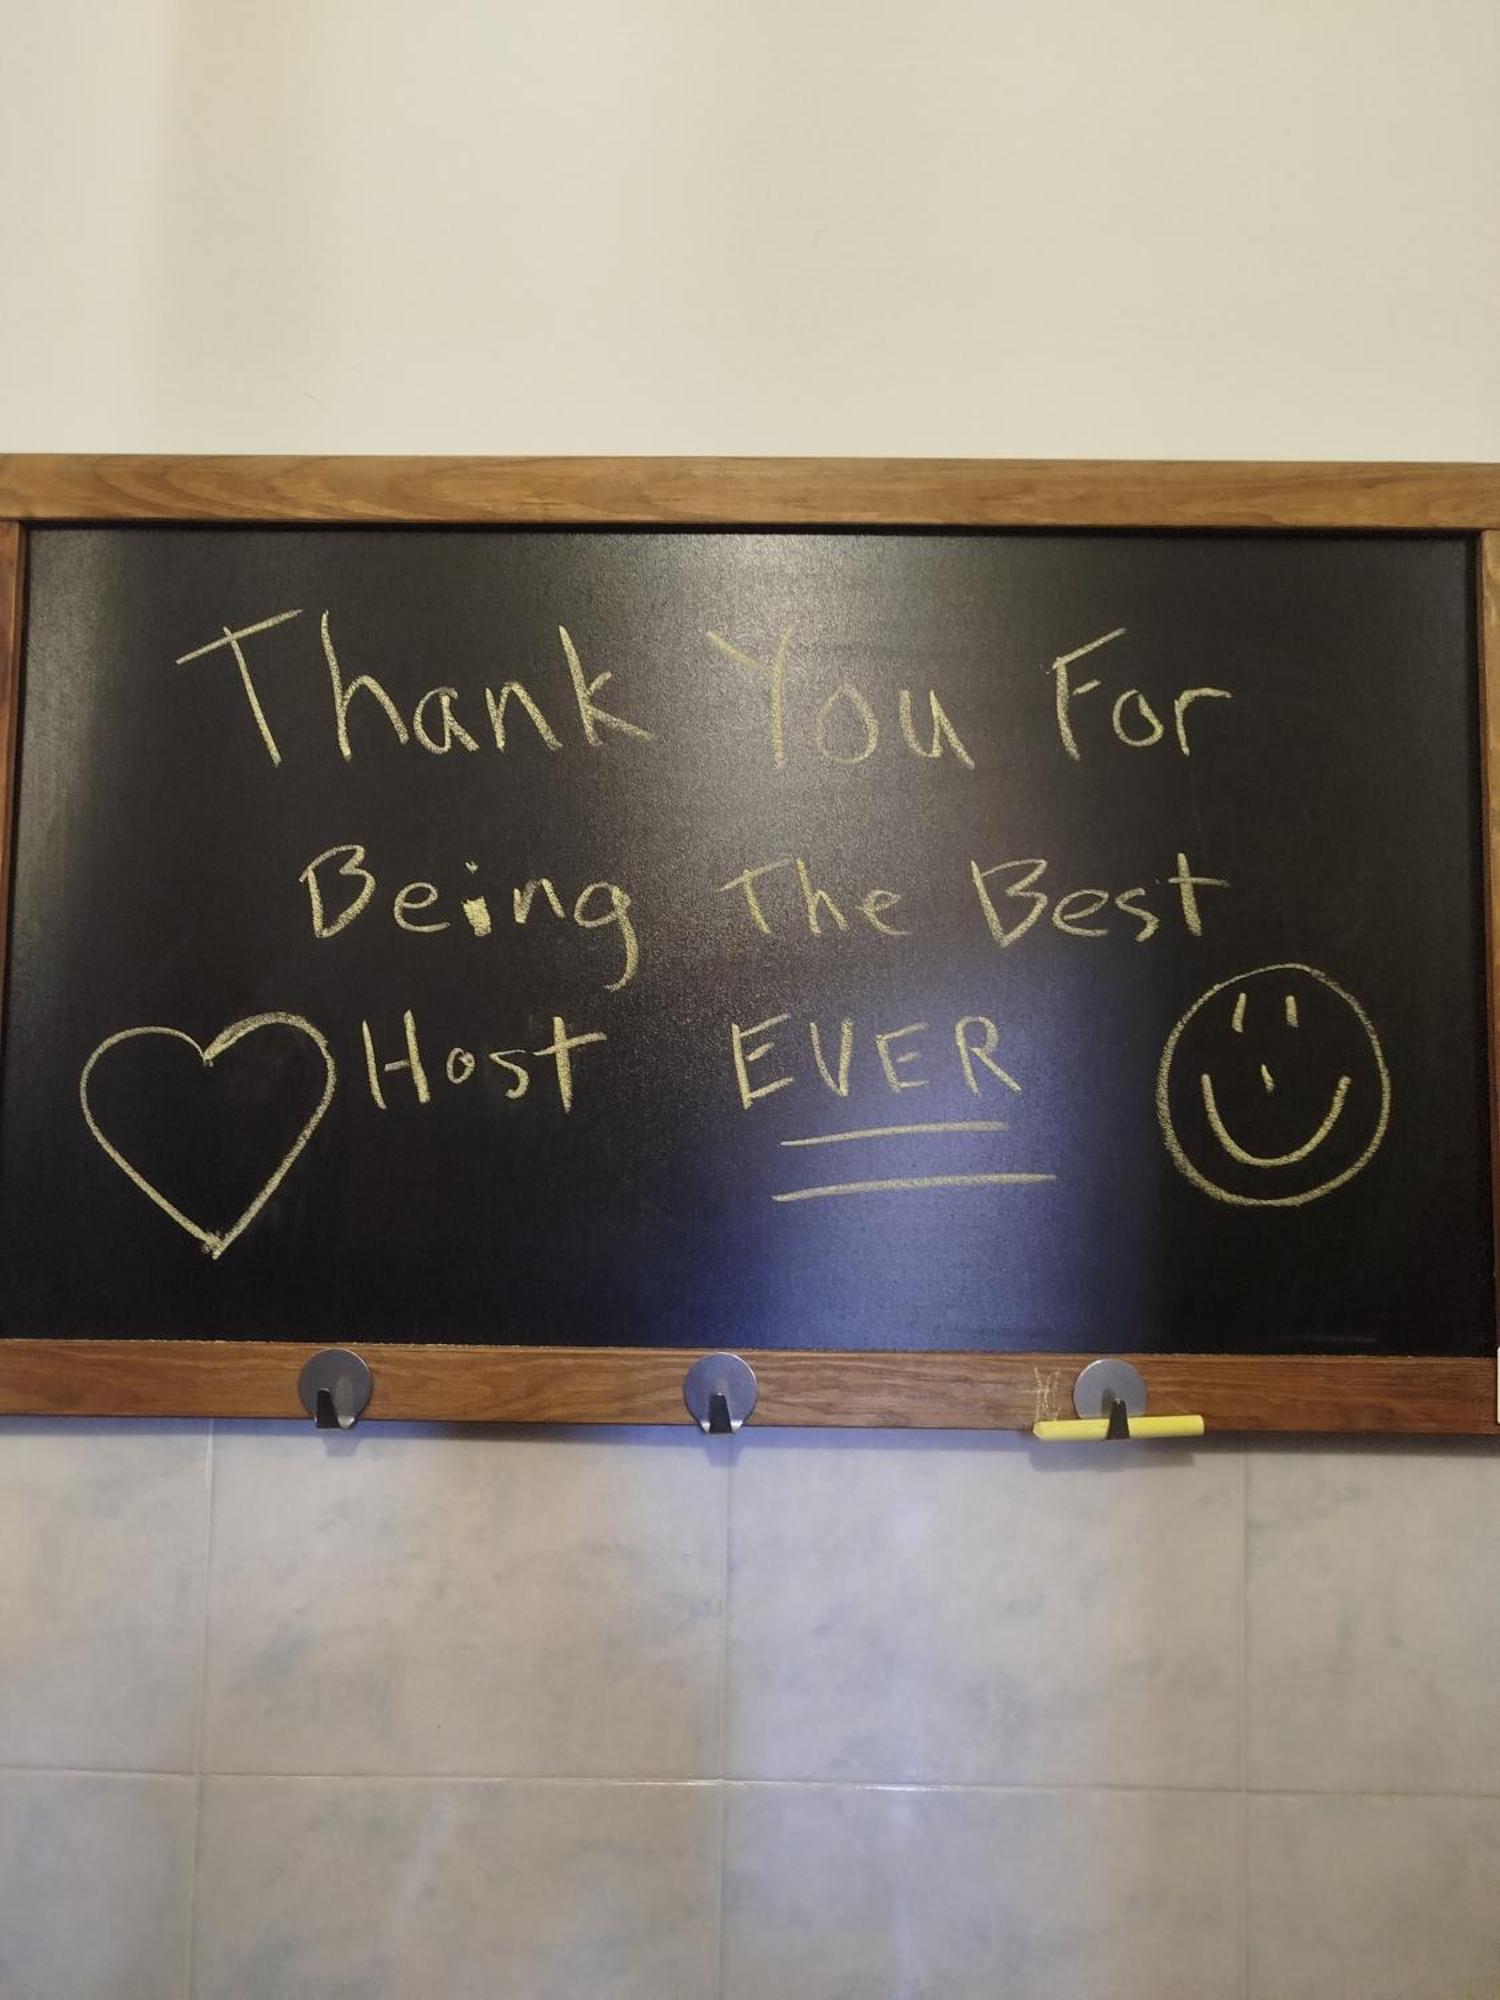 Thank You For
Being The Best
Host EVER